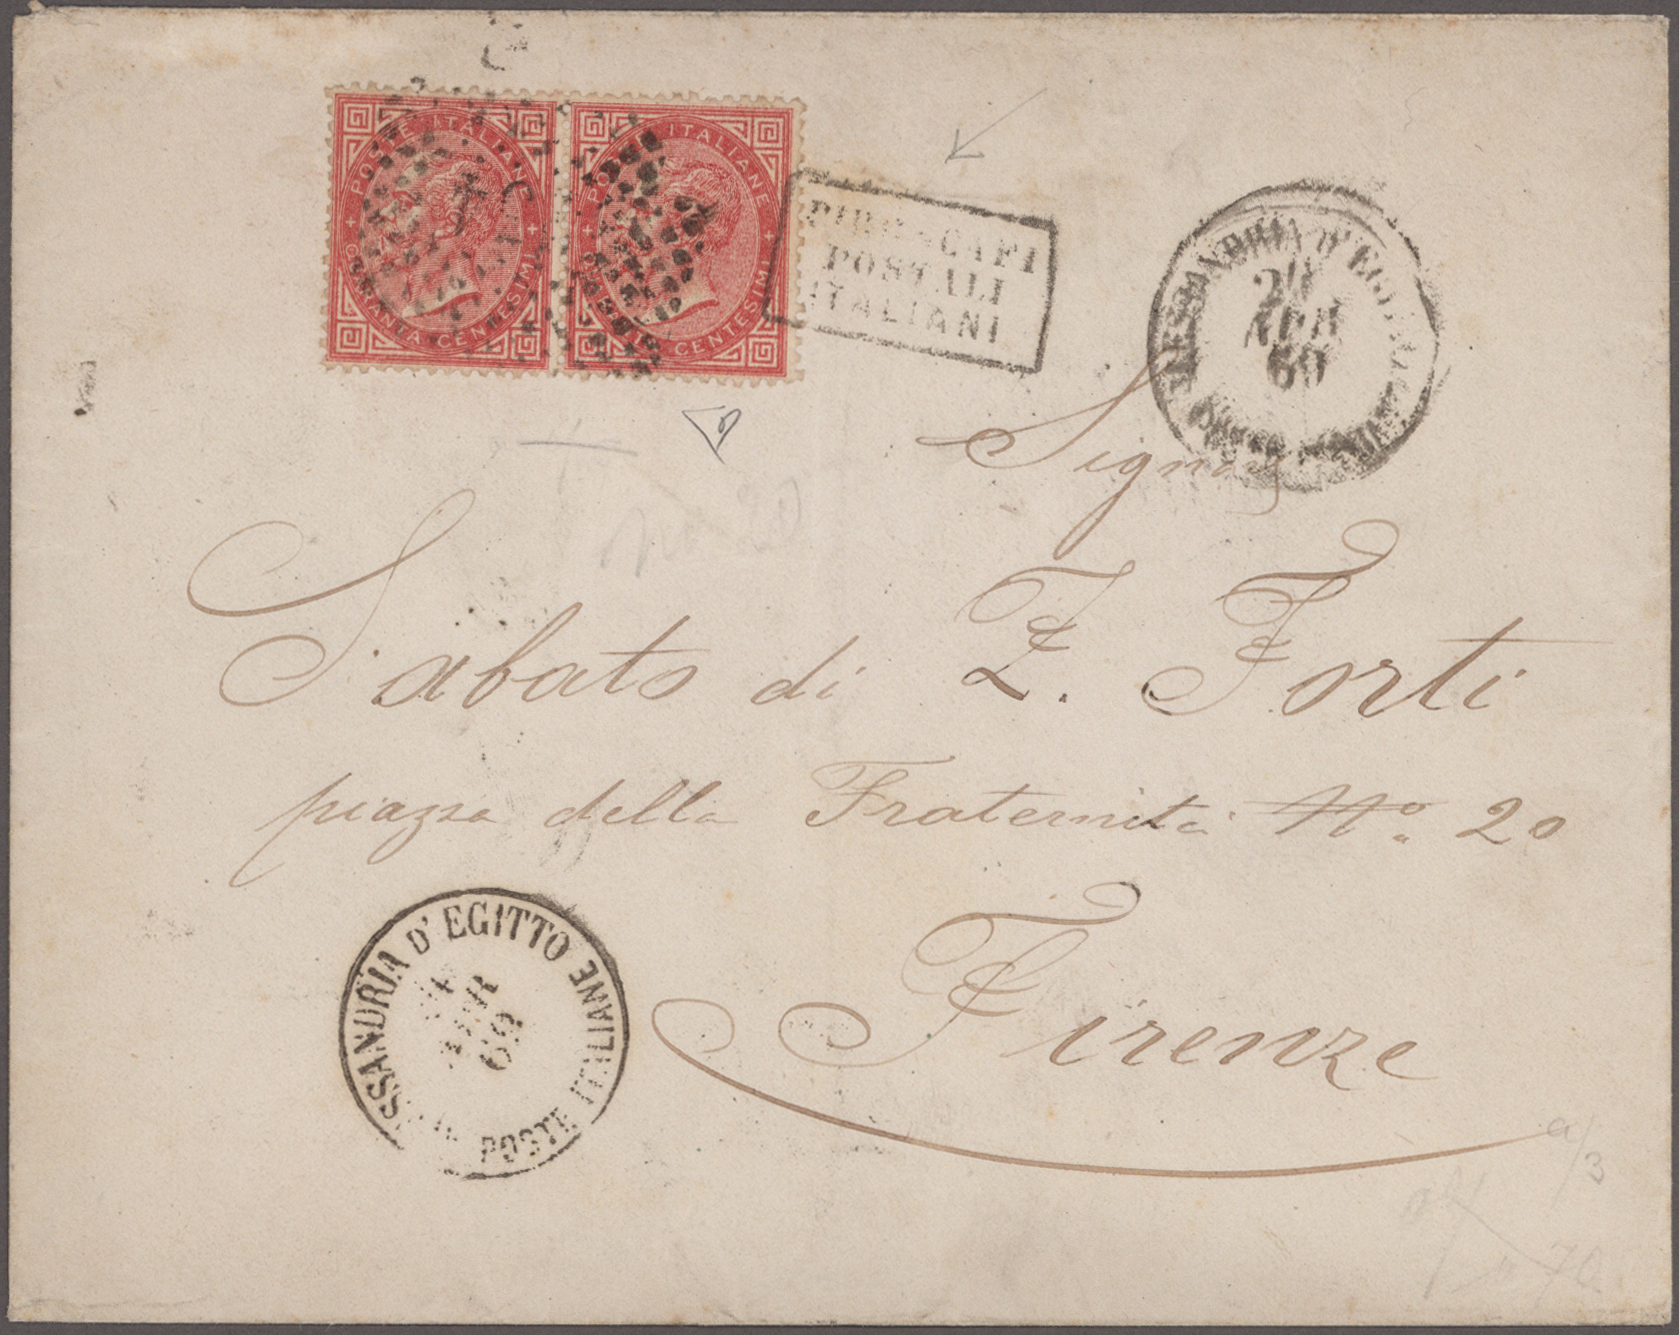 POSTE ITALIANE
QUARANTA CENTESIMI
POSTE ITALIANE
CENTESIMI
PIROSCAFI
POSTALI
ITALIANI
ALESSANDRIA D'EGITTO
APR
69
Signor
Sabato di Z. Forti
piazza della Fraternità No. 20
Firenze
No 20
SSANDRIA D'EGITTO
POSTE ITALIANE
APR
69
a/3
70